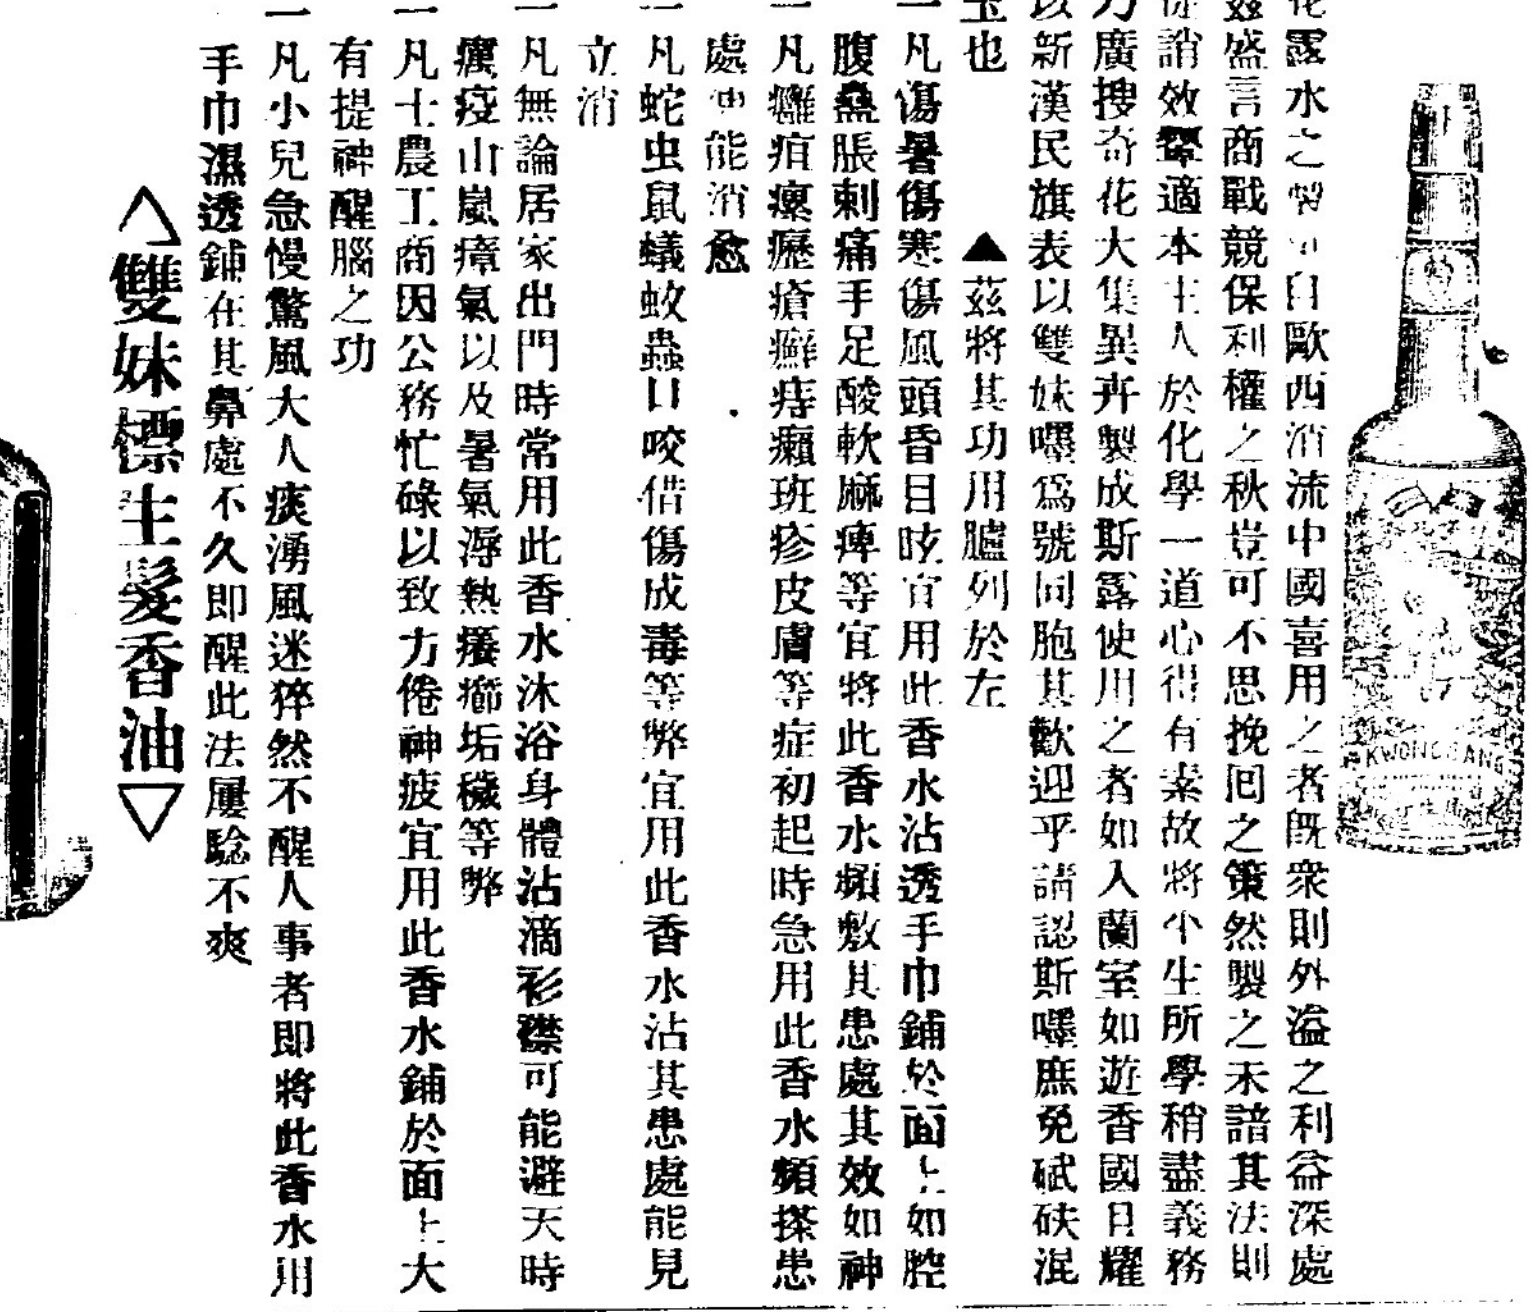 花露水之製自歐西消流中國喜用之者既衆則外溢之利益深處
茲盛言商戰競保利權之秋豈可不思挽回之策然製之未諳其法則
從誚效顰適本主人於化學一道心得有素故將半生所學稍盡義務
力廣搜奇花大集異卉製成斯露使用之者如入蘭室如遊香國且耀
以新漢民旗表以雙妹嘜為號同胞其歡迎乎請認斯嘜庶免碔砆混
玉也
▲茲將其功用臚列於左
一凡傷暑傷寒傷風頭昏目眩宜用此香水沾透手巾鋪於面上如腔
腹蠱脹刺痛手足酸軟麻痺等宜將此香水頻敷其患處其效如神
一凡癰疽瘰癧瘡癬痔癩班疹皮膚等症初起時急用此香水頻搽患
處也能消愈
一凡蛇虫鼠蟻蚊蟲口咬借傷成毒等弊宜用此香水沾其患處能見
立消
一凡無論居家出門時常用此香水沐浴身體沾滴衫襟可能避天時
癘疫山嵐瘴氣以及暑氣溽熱癢癤垢穢等弊
一凡士農工商因公務忙碌以致力倦神疲宜用此香水鋪於面上大
有提神醒腦之功
一凡小兒急慢驚風大人痰湧風迷猝然不醒人事者即將此香水用
手巾濕透鋪在其鼻處不久即醒此法屢驗不爽
△雙妹標生髮香油▽
KWONGSANG